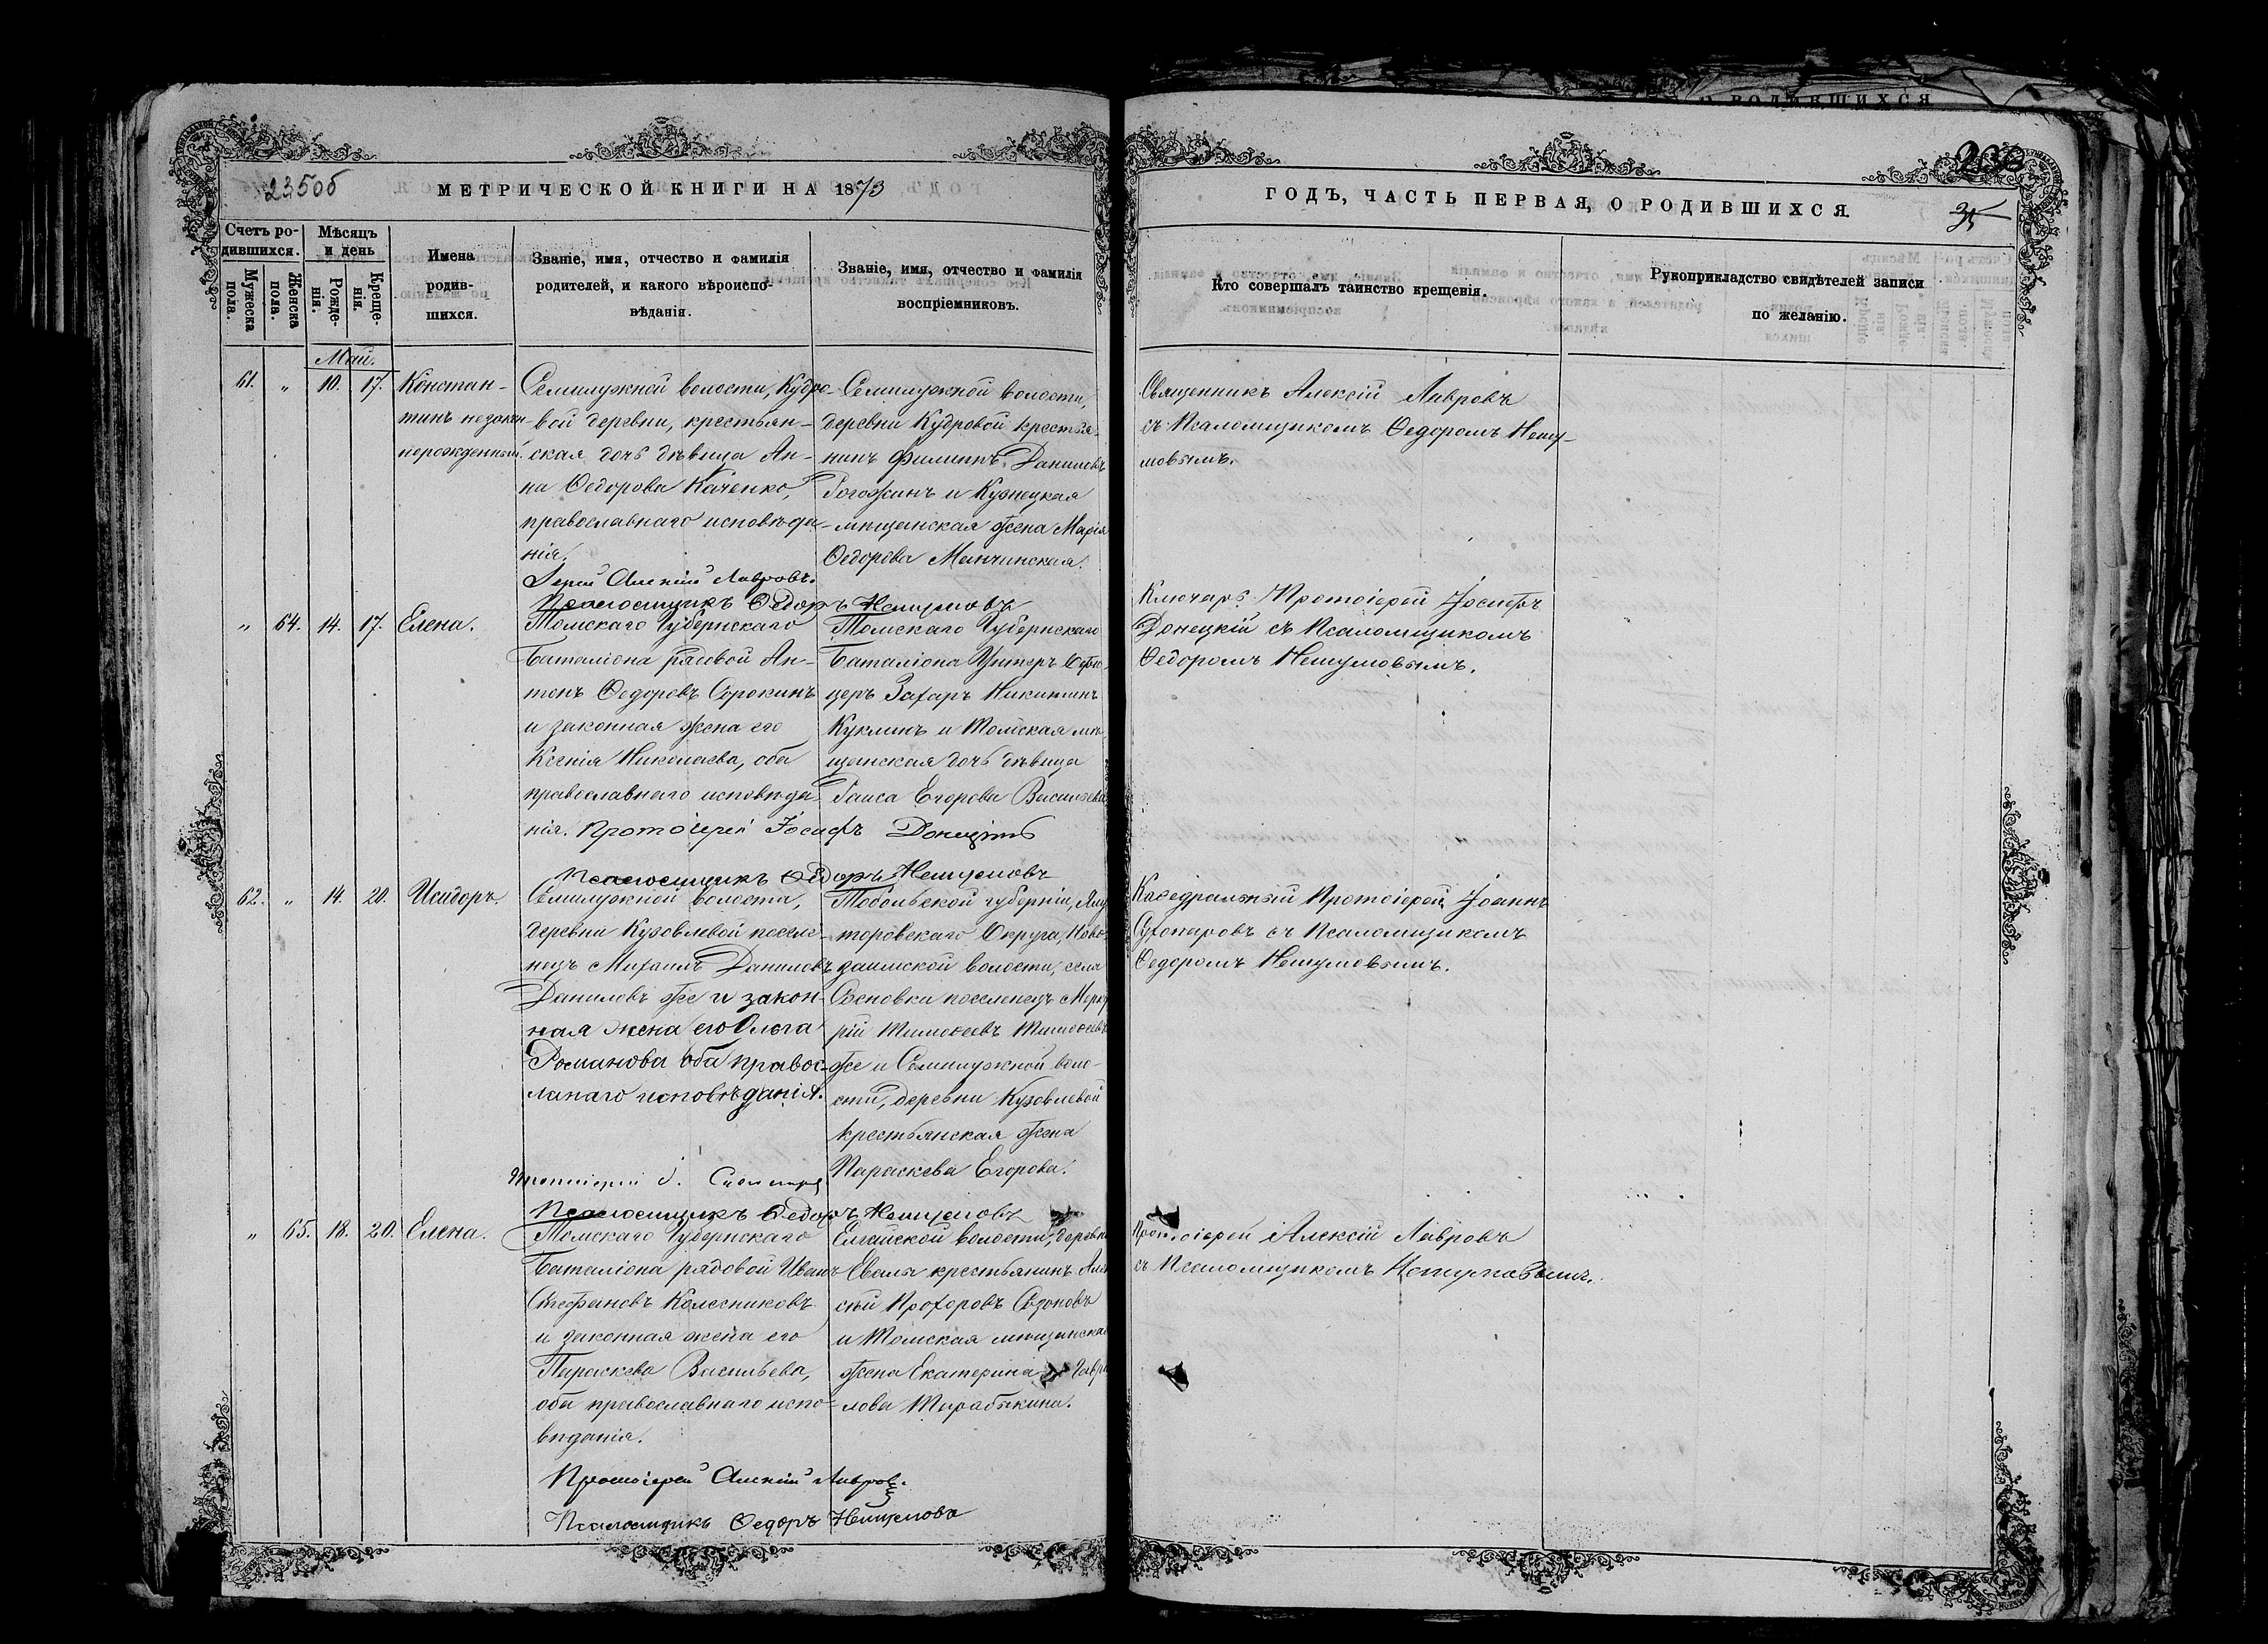 235об
МЕТРИЧЕСКОЙ КНИГИ НА 1873
Счетъ ро-
дившихся.
Мужеска
пола.
Женска
пола.
Мѣсяцъ
и день
Рожде-
нія.
Креще-
нія.
Имена
родив-
шихся.
Званіе, имя, отчество и фамилія
родителей, и какого вѣроиспо-
вѣданія.
Званіе, имя, отчество и фамилія
воспріемниковъ.
Май.
61. " 10. 17.
Констан-
тинъ незакон
норожденный.
Семилужной волости, Кудро-
вой деревни, крестьян-
ская дочь дѣвица Ан-
на Ѳедорова Каченко,
православнаго исповѣда-
нія.
Семилужной волости,
деревни Кудровой крестья-
нинъ Филиппъ Даниловъ
Рогожинъ и Кузнецкая
мѣщанская жена Марія
Ѳедорова Манчинская.
Іерей Алексій Лавровъ.
Псаломщикъ Ѳедоръ Нешумовъ
" 64. 14. 17. Елена.
Томскаго Губернскаго
Баталіона рядовой Ан-
тонъ Ѳедоровъ Сорокинъ
и законная жена его
Ксенія Николаева, оба
православнаго исповѣда-
нія.
Томскаго Губернскаго
Баталіона Унтеръ Офи-
церъ Захаръ Никитинъ
Куклинъ и Томская мѣ-
щанская дочь дѣвица
Раиса Егорова Васильева
Протоіерей Іосифъ Донецкій
Псаломщикъ Ѳедоръ Нешумовъ
62. " 14. 20. Исидоръ.
Семилужной волости,
деревни Кузовлевой поселе-
нецъ Михаилъ Даниловъ
Даниловъ же и закон-
ная жена его Ольга
Романова оба правос-
лаnаго исповѣданія.
Тобольской губерніи, Ялу
торовскаго Округа, Ново-
заимской волости, села
Сосновки поселенецъ Мерку
рій Тимоѳеевъ Тимоѳеевъ
же и Семилужной воло-
сти, деревни Кузовлевой
крестьянская жена
Параскева Егорова.
Протоіерей І.
Псаломщикъ Ѳедоръ Нешумовъ
" 65. 18. 20. Елена.
Томскаго Губернскаго
Баталіона рядовой Иванъ
Стефановъ Колесниковъ
и законная жена его
Параскева Васильева,
оба православнаго испо-
вѣданія.
Елгайской волости, деревни
крестьянинъ Алек
сѣй Прохоровъ Созоновъ
и Томская мѣщанская
жена Екатерина Гаври
лова Тарабыкина.
Протоіерей Алексій Лавровъ.
Псаломщикъ Ѳедоръ Нешумовъ
ГОДЪ, ЧАСТЬ ПЕРВАЯ, О РОДИВШИХСЯ.
35
Кто совершалъ таинство крещенія.
Рукоприкладство свидѣтелей записи
по желанію.
Священникъ Алексій Лавровъ
съ Псаломщикомъ Ѳедоромъ Нешу-
мовымъ.
Ключарь Протоіерей Іосифъ
Донецкій съ Псаломщикомъ
Ѳедоромъ Нешумовымъ.
Каѳедральный Протоіерей Іоаннъ
Сухопаровъ съ Псаломщикомъ
Ѳедоромъ Нешумовымъ.
Протоіерей Алексій Лавровъ
съ Псаломщикомъ Нешумовымъ.